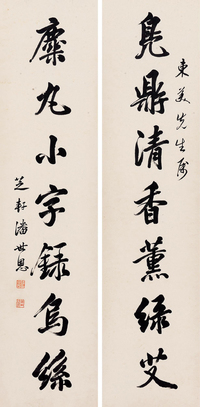 東美先生屬
鳧鼎清香薰緑艾
麋丸小字録烏絲
芝軒潘世恩